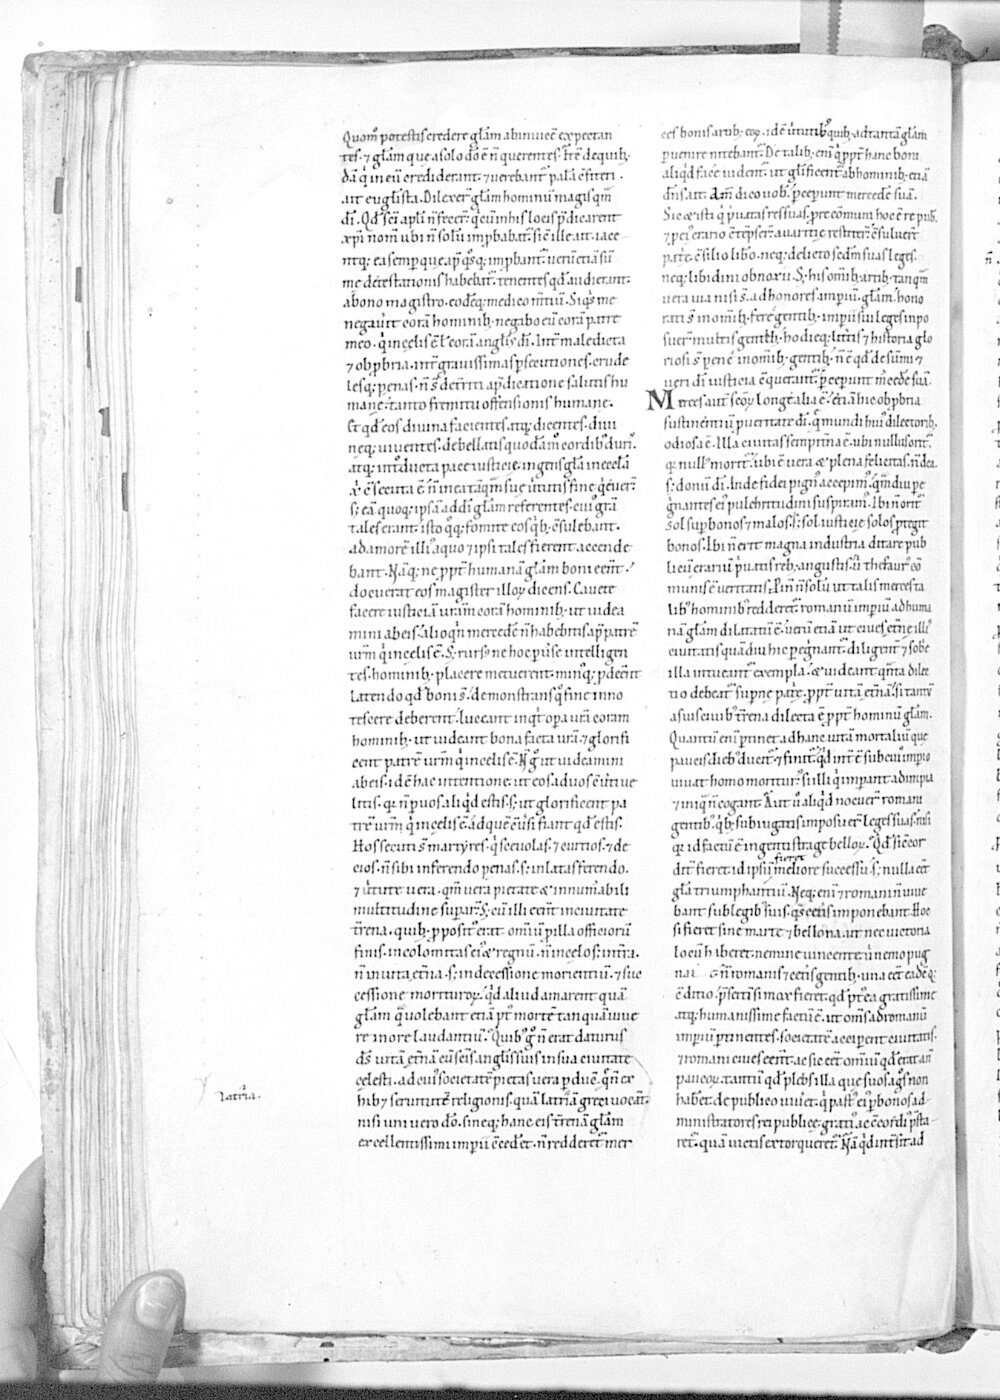 Quom̄ potestis credere głam ab inuicē expectan
tes. ⁊ głam que a solo dō ē n̄ querentes. Itē de quib;
dā q̇ in eū crediderant. ⁊ uerebant̄ palā c̄fiteri.
ait eug̃lista. Dilexer̄ głam hominū magis qm̄
dī. Qd̄ sc̄i apl̄i n̄ fecer̄. q̇ cū in his locis p̄dicarent
xp̄i nom̄ ubi n̄ solū imp̱babat̄. sic̄ ille ait. iace
ntq; ea semp̱ que ap̱ q̇sq; imp̱bant̄. uerū etiā sū
me detestationis habebat̄. tenentes qd̄ audierant.
a bono magistro. eodēq; medico m̄tiū. Siq̇s me
negauit corā hominib; negabo eū corā patre
meo. q̇ in celis ē ł corā angl̄is dī. Int̄ maledicta
⁊ obp̱bria. int̄ grauissimas p̱secutiones. crude
lesq; penas. n̄ s̄ det̄riti a p̄dicatione salutis hu
mane. tanto fremitu offensionis humane.
Et qd̄ eos diuina facientes. atq; dicentes. diui
neq; uiuentes. debellatis quodāmͦ cordib; duri͛.
atq; intͦducta pace iusticie. ingens gła in ecclā
x̄ ē secuta ē n̄ in ea tāqm̄ sue ũtutis fine q̇euer̄.
s; eā quoq; ipsā ad dī głam referentes. cui͛ grā
tales erant. isto qͦq; fomite eos q̇b; c̄sulebant.
ad amorē illi͛. a quo ⁊ ipsi tales fierent accende
bant. Nāq; ne ppt̄ humanā głam boni eēnt.
docuerat eos magister illoꝝ dicens. Cauete
facere iusticiā ur̄am corā hominib; ut uidea
mini ab eis. alioq̇n mercedē n̄ habebitis ap̱ patrē
ur̄m q̇ in celis ē. S; rursͦ ne hoc p̱use intelligen
tes. hominib; placere metuerent. minͦq; p̱deēnt
latendo qd̄ boni s̄. demonstrans qͦ fine inno
tescere deberent. luceant inqͭ op̱a ur̄a coram
hominib; ut uideant bona facta ur̄a. ⁊ glorifi
cent patrē ur̄m q̇ in celis ē. Ñ gͦ ut uideamini
ab eis. idē hac intentione. ut eos ad uos c̄uti ue
litis. q̇ n̄ p̱ uos aliq̇d estis. s; ut glorificent pa
trē ur̄m q̇ in celis ē. ad quē c̄ũsi fiant qd̄ estis.
Hos secuti s̄ martẏres. q̇ sceuolas. ⁊ curtios. ⁊ de
cios. n̄ sibi inferendo penas. s; inlatas ferendo.
⁊ ũtute uera. qm̄ uera pietate ⁊ innum̄abili
multitudine sup̱ar̄. S; cū illi eēnt in ciuitate
t̄rena. quib; p̱positͦ erat omiū p̱ illa officiorū
finis. incolomitas ei͛ ⁊ regnū. n̄ in celo s; in t̄ra.
n̄ in uita et̄na. s; in decessione morientiū. ⁊ suc
cessione morituroꝝ. q̇d aliud amarent quā
głam q̇ uolebant etiā pt̄ mortē tanquā uiue
re in ore laudantiū. Quib͛ gͦ n̄ erat daturus
ds̄. uitā et̄nā cū sc̄is angl̄is suis in sua ciuitate
celesti. ad cui͛ societatē pietas uera p̱ducē. q̄ n̄ ex
hib& seruitutē religionis. quā latriā greci uocāt.
nisi uni uero dō. si neq; hanc eis t̄renā głam
excellentissimi imp̱ii c̄cedet. n̄ redderet̄ mer
latria.
ces bonis artib; eoꝝ. idē ũtutib͛ quib; ad tantā głam
p̱uenire nitebant̄. De talib; eni͛ q̇ ppt̄ hanc boni
aliq̇d face uidentͬ. ut gl̄ificentͬ ab hominib; etiā
dn̄s ait. Am̄ dico uob̄. p̱cep̱unt mercedē suā.
Sic ⁊ isti q̇ p̱uatas res suas. pre com̄uni hoc ē re pub.
⁊ p̱ ei͛ erario c̄tēp̱ser̄. auaritie restiter̄. c̄suluer̄
pat̄e. c̄silio libo. neq; delicto sc̄dm̄ suas leges.
neq; libidini obnoxii. S; his om̄ib; artib; tanqm̄
uera uia nisi s̄. ad honores imp̱iū. głam. hono
rati s̄ in om̄ib; fere gentib; imp̱ii sui leges inpo
suer̄ multis gentib; hodieq; litt̄is ⁊ historia glo
riosi s̄ pene in om̄ib; gentib; n̄ ē qd̄ de sūmi ⁊
ueri dī iusticia c̄querant̄. p̱cep̱unt m̄cedē suā.
Merces aut̄ sc̄oꝝ longe alia ē. etiā hic obp̱bria
sustinentiū p̱ ueritate dī. q̄ mundi hui͛ dilectorib;
odiosa ē. Illa ciuitas sempit̄na ē. ubi nullus orit̄.
q̇ null͛ morit̄. ubi ē uera ⁊ plena felicitas. n̄ dea.
s; donū dī. Inde fidei pign͛ accepim͛. qm̄diu pe
ġnantes ei͛ pulchritudini suspiram͛. Ibi n̄ orit̄
sol sup̱ bonos ⁊ malos. s; sol iusticie solos p̱tegit
bonos. Ibi n̄ erit magna industria ditare pub
licū erariū p̱uatis reb; angustis. ū thesaur͛ cō
munis ē ueritatis. P̱in̄ n̄ solū ut talis merces ta
lib͛ hominib͛ redderet̄. romanū imp̱iū ad huma
nā głam dilatatū ē. uerū etiā ut ciues et̄ne illi͛
ciuitatis quādiu hic peġnant̄. diligent̄ ⁊ sob̄e
illa intueant̄ exempla. ⁊ uideant qm̄ta dilec
tio debeat̄ sup̱ne pat̄e. ppt̄ uitā et̄nā. si tantū
a suis ciuib͛ t̄rena dilecta ē ppt̄ hominū głam.
Quantū eni͛ p̱tinet ad hanc uitā mortaliū que
paucis dieb͛ ducit̄ ⁊ finit̄. q̇d int̄ē sub cui͛ imp̱io
uiuat homo moritur͛. si illi q̇ imp̱ant ad impia
⁊ iniqͣ n̄ cogant. Aut ū aliq̇d nocuer̄ romani
gentib͛. q̇b; subiugatis imposuer̄ leges suas. nisi
q̇ id factū ē ingenti strage belloꝝ. Qd̄ si c̄cor
dit̄ fieret id ipsū fieret meliore successu. s; nulla eēt
gła triumphantiū. Neq; eni͛ ⁊ romani n̄ uiue
bant sub legib͛ suis. qͣs cet̄is imponebant. Hoc
si fieret sine marte ⁊ bellona. ut nec uictoria
locū h̄iberet. nemine uincente ū nemo pug
na n̄ romanis ⁊ cet̄is gentib; una eēt eadēq;
c̄ditio. p̱sertī si mox fieret. qd̄ pt̄ea gratissime
atq; humanissime factū ē. ut om̄s ad romanū
imp̱iū p̱tinentes. societatē accip̱ent ciuitatis.
⁊ romani ciues eēnt. ac sic eēt om̄iū qd̄ erat an̄
paucoꝝ. tantū qd̄ plebs illa que suos agͦs non
haberet. de publico uiueret. q̇ past͛ ei͛ p̱ bonos ad
ministratores rei publice. grati͛ a c̄cordi͛ p̱sta
ret̄. quā uictis extorqueret̄. Nā q̇d int̄sit ad